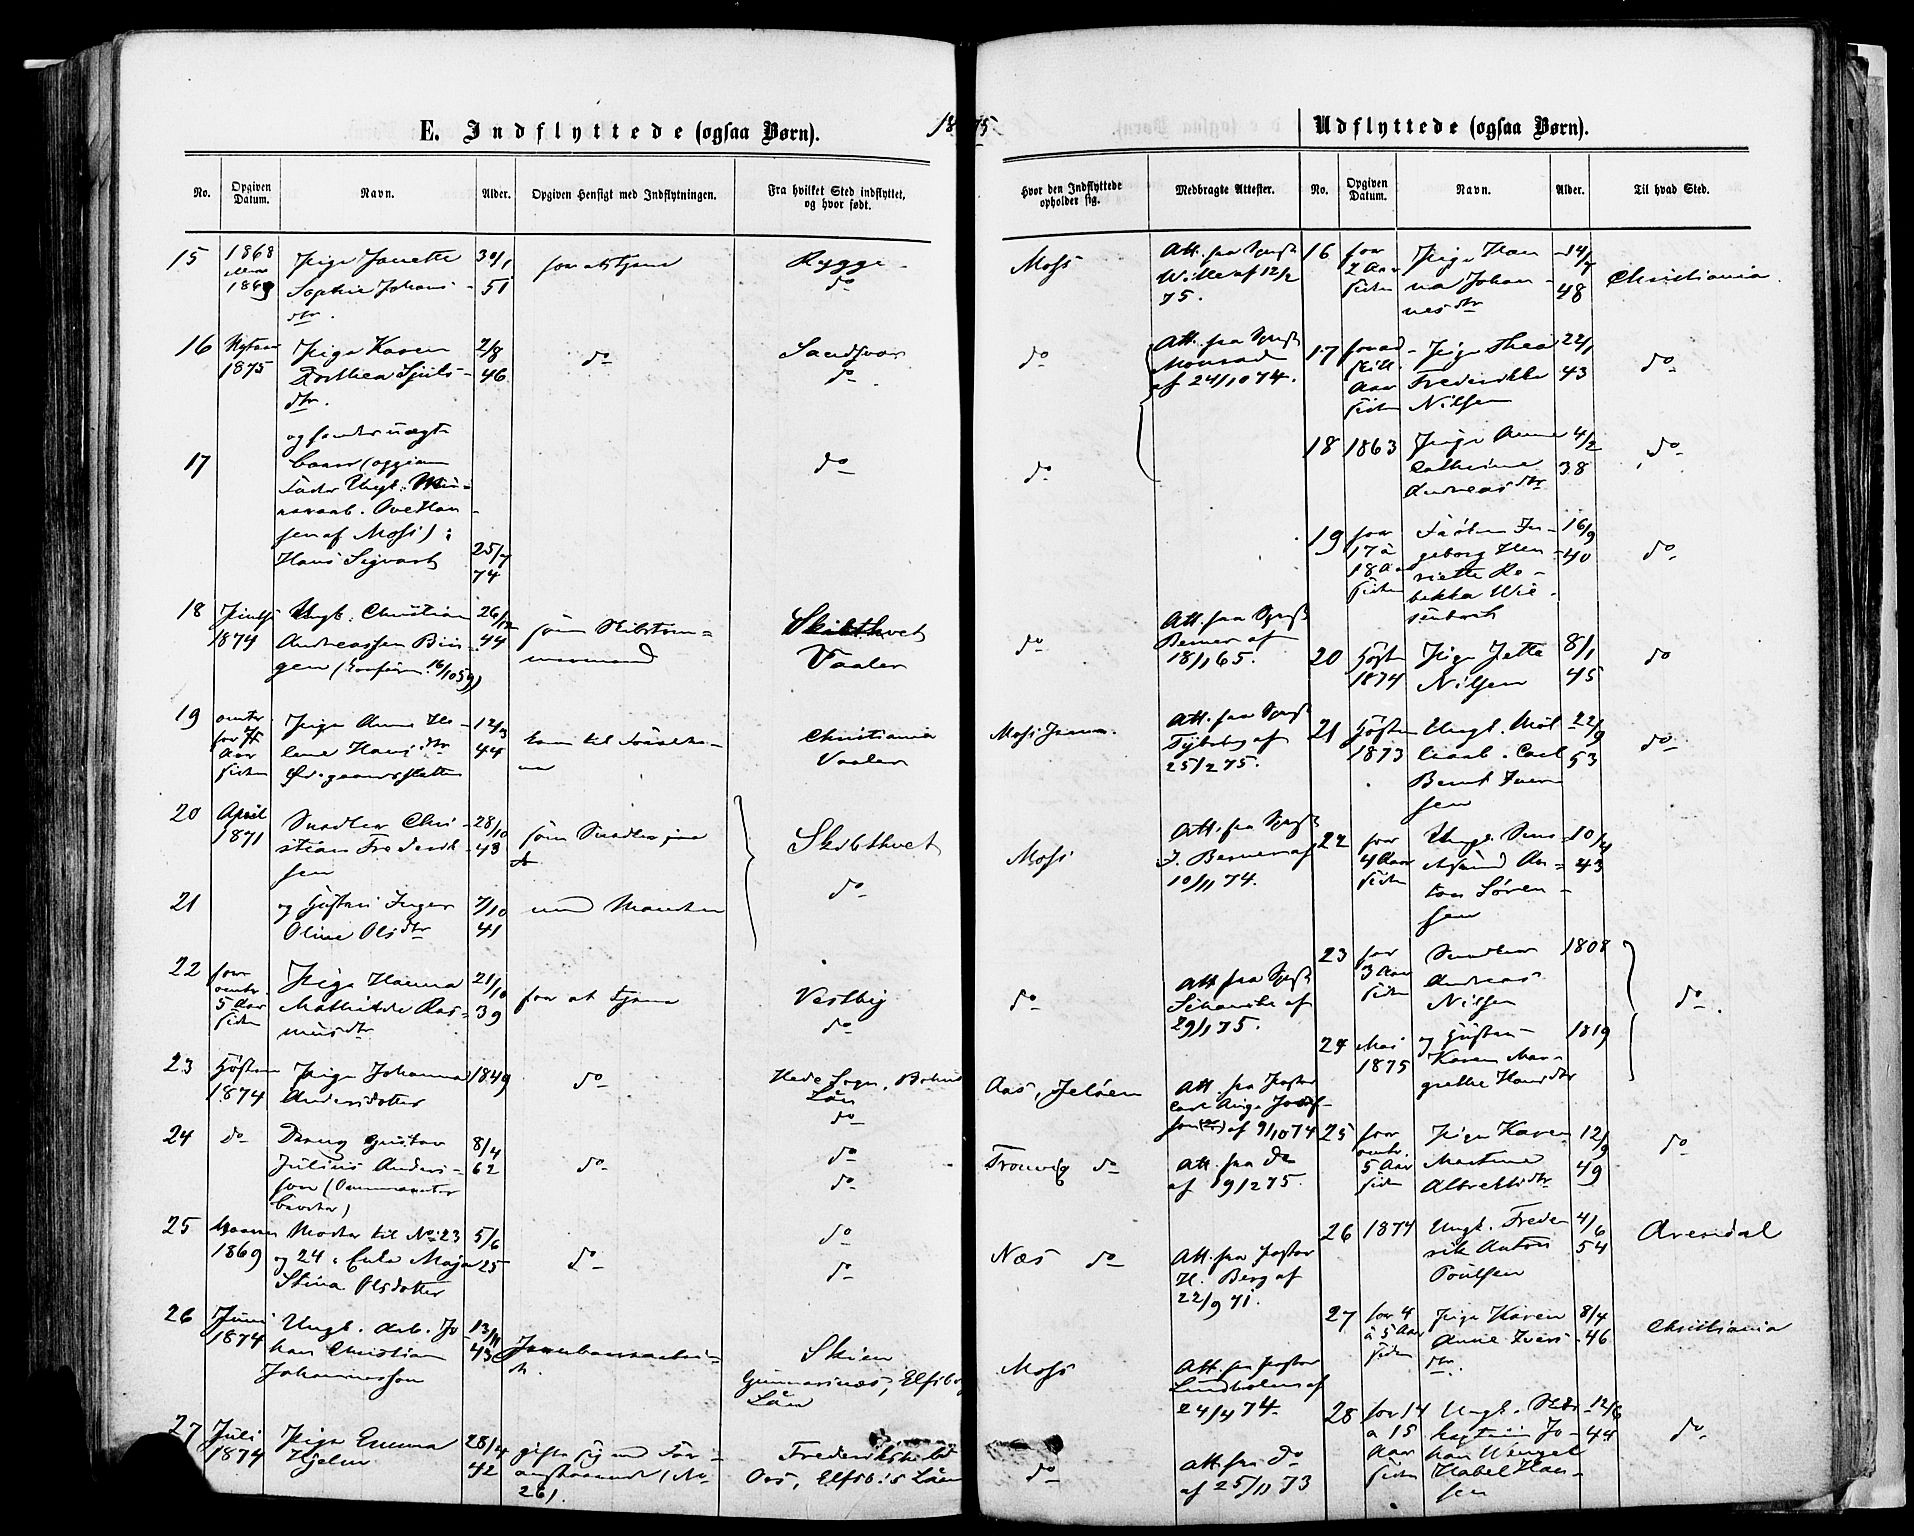 E. Indflyttede (ogsaa Børn).
1875
Udflyttede (ogsaa Børn).
No.
Opgiven Datum.
Navn.
Alder.
Opgiven Hensigt med Indflytningen.
Fra hvilket Sted indflyttet,
og hvor født.
Hvor den Indflyttede
opholder sig.
Medbragte Attester.
No.
Opgiven Datum.
Navn.
Alder.
Til hvad Sted.
15 1868 Pige Janette 30/1 for at tjene Rygge
1869 Sophie Johans- 51 do
dtr.
Moss Att. fra Spst.
Wille af 12/2
75.
16 Nytaar Pige Karen 2/8 do Sandsvær
1875 Dorthea Sjuls- 46 do
dtr.
do Att. fra Spst.
af 24/10 74.
17 og hendes uægte
Barn (opgiven
Fader Ungk.
Ove Han-
sen af Moss):
Hans Sigvart 25/7
74
do
do
18 Ungk. Christian 26/12 som Skibstøm- Skibthvet
1874 Andreassen Bin- 44 mermand Vaaler
gen (Confirm. 16/10 59)
do Att. fra Spst.
Berner af
18/1 65.
19 omtr. Pige Anne He- 12/3 Christiania
for
Aar lene Hansdtr 44 Vaaler
siden
Moss Att. fra Spst.
25/2 75.
20 April Snedker Chri- 28/10 som Snedker Skibthvet
1871 stian Frederik- 43
sen
Moss Att. fra Spst.
J. Berner af
10/11 74.
21 og Hustru Inger 7/10 med Manden do
Oline Olsdtr 41
22 for Pige Hanna 21/10 for at tjene Vestby
omtr. Mathilde Ras- 39 do
5 Aar musdtr
siden
do Att. fra Spst.
af
29/1 75.
23 Høsten Pige Johanna 1849 do Hede Sogn, Bohus
1874 Andersdotter Län
do
Aas, Jeløen Att. fra Pastor
Carl Aug. Josef-
son af 9/10 74
24 do Dreng Gustav 8/4 do do
Julius Anders- 62 do
son
Tronvig do Att. fra do
af 19/2 75.
25 Vaaren Moder til No 23 5/6 do do
1869 og 24: Eula Maja 25 do
Stina Olsdotter
Næs do Att. fra Pastor
H. Berg af
22/9 71.
26 Juni Ungk. Arb. Jo- 13/11 Jernbanearbei- Skien
1874 han Christian 43 Gunnarsnäs, Elfsborg
Johannesson Län
Moss Att. fra Pastor
Lindholm af
24/4 74.
27 Juli Pige Emma 28/4 gifte sig med For- Frederikshald
1874 Hjelm 42 (No Ors, Elfsb:s Län
26).
do Att. fra do
af 25/11 73
16 for Pige Han- 14/7 Christiania
2 Aar na Johan- 48
siden nesdtr
17 Pige Thea 22/1 do
Aar Frederikke 43
siden Nilsen
18 1863 Pige Anne 4/2 do
Cathrine 38
Andreasdtr
19 for Frøken In- 16/9 do
17 à geborg Hen- 40
18 Aar riette Re-
siden bekka Wie-
20 Høsten Pige Jette 8/1 do
1874 Nilsen 45
21 Høsten Ungk. 22/9 do
1873 Carl 53
Bernt Iver-
sen
22 for Ungk. 10/4
4 Aar An- 43
siden ton Søren-
sen
23 for Snedker 1808
3 Aar Andreas
siden Nilsen
do
24 Mai og Hustru 1819
1875 Karen Mar-
grethe Hansdtr
25 for Pige Karen 12/9 do
omtr. Martine 49
5 Aar Albretsdtr
siden
26 1874 Ungk. Frede- 4/6 Arendal
rik Anton 54
Poulsen
27 for 4 Pige Karen 8/4 Christiania
à 5 Aar Anne Ivers- 46
siden dtr.
28 for 14 Ungk. 12/6 do
à 15 Jo- 44
Aar han Wenzel
siden Habel Han-
sen